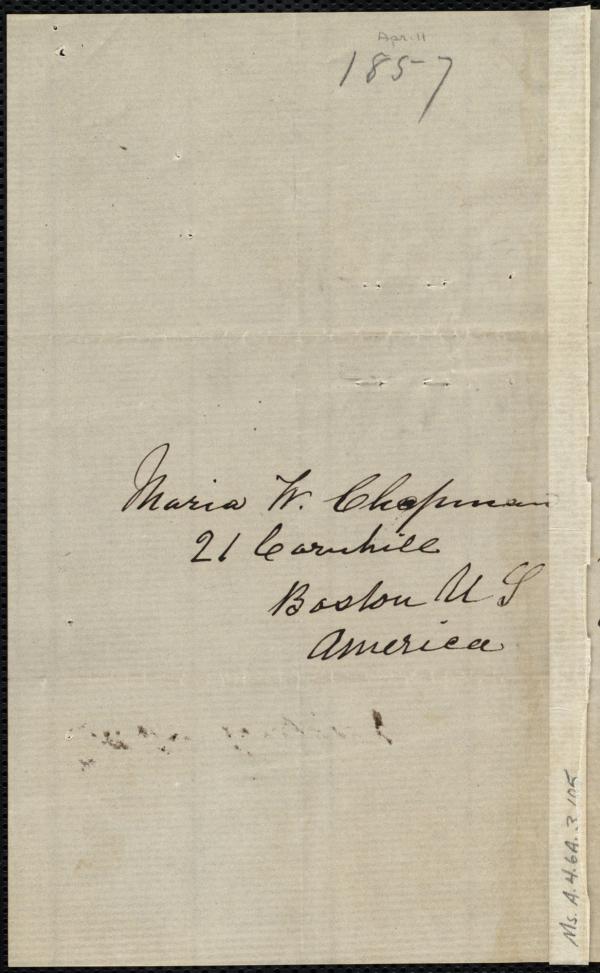 April
1857
Maria W. Chapman
21 Cornhill
Boston U S
America
Ms. A. 4. 6A. 3 105